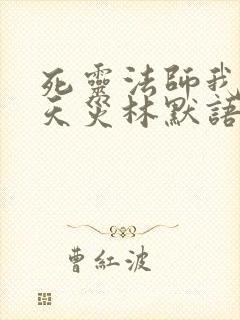 死靈法師我
天災林默語
曹紅波